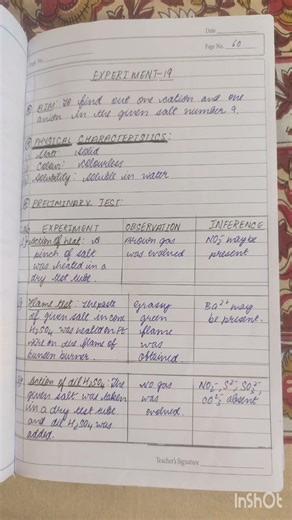 Date
Page No. 60
EXPERIMENT-19
AIM: To find out one cation and one
anion in the given salt number 9.
PHYSICAL CHARACTERISTICS:
State: Solid
Colour: Colourless
Solubility: Soluble in water
PRELIMINARY TEST:
EXPERIMENT OBSERVATION INFERENCE
Action of heat: A Brown gas NO₃⁻ may be
pinch of salt was evolved present
was heated in a
dry test tube.
Flame Test: The paste Grassy Ba²⁺ may
of given salt in conc green be present.
H₂SO₄ was heated on Pt flame
wire on the flame of was
bunsen burner. obtained
Action of dil H₂SO₄: The No gas NO₂⁻, S²⁻, SO₃²⁻
given salt was taken was CO₃²⁻ absent
in a dry test tube evolved.
and dil H₂SO₄ was
added.
Teacher's Signature
InShOt